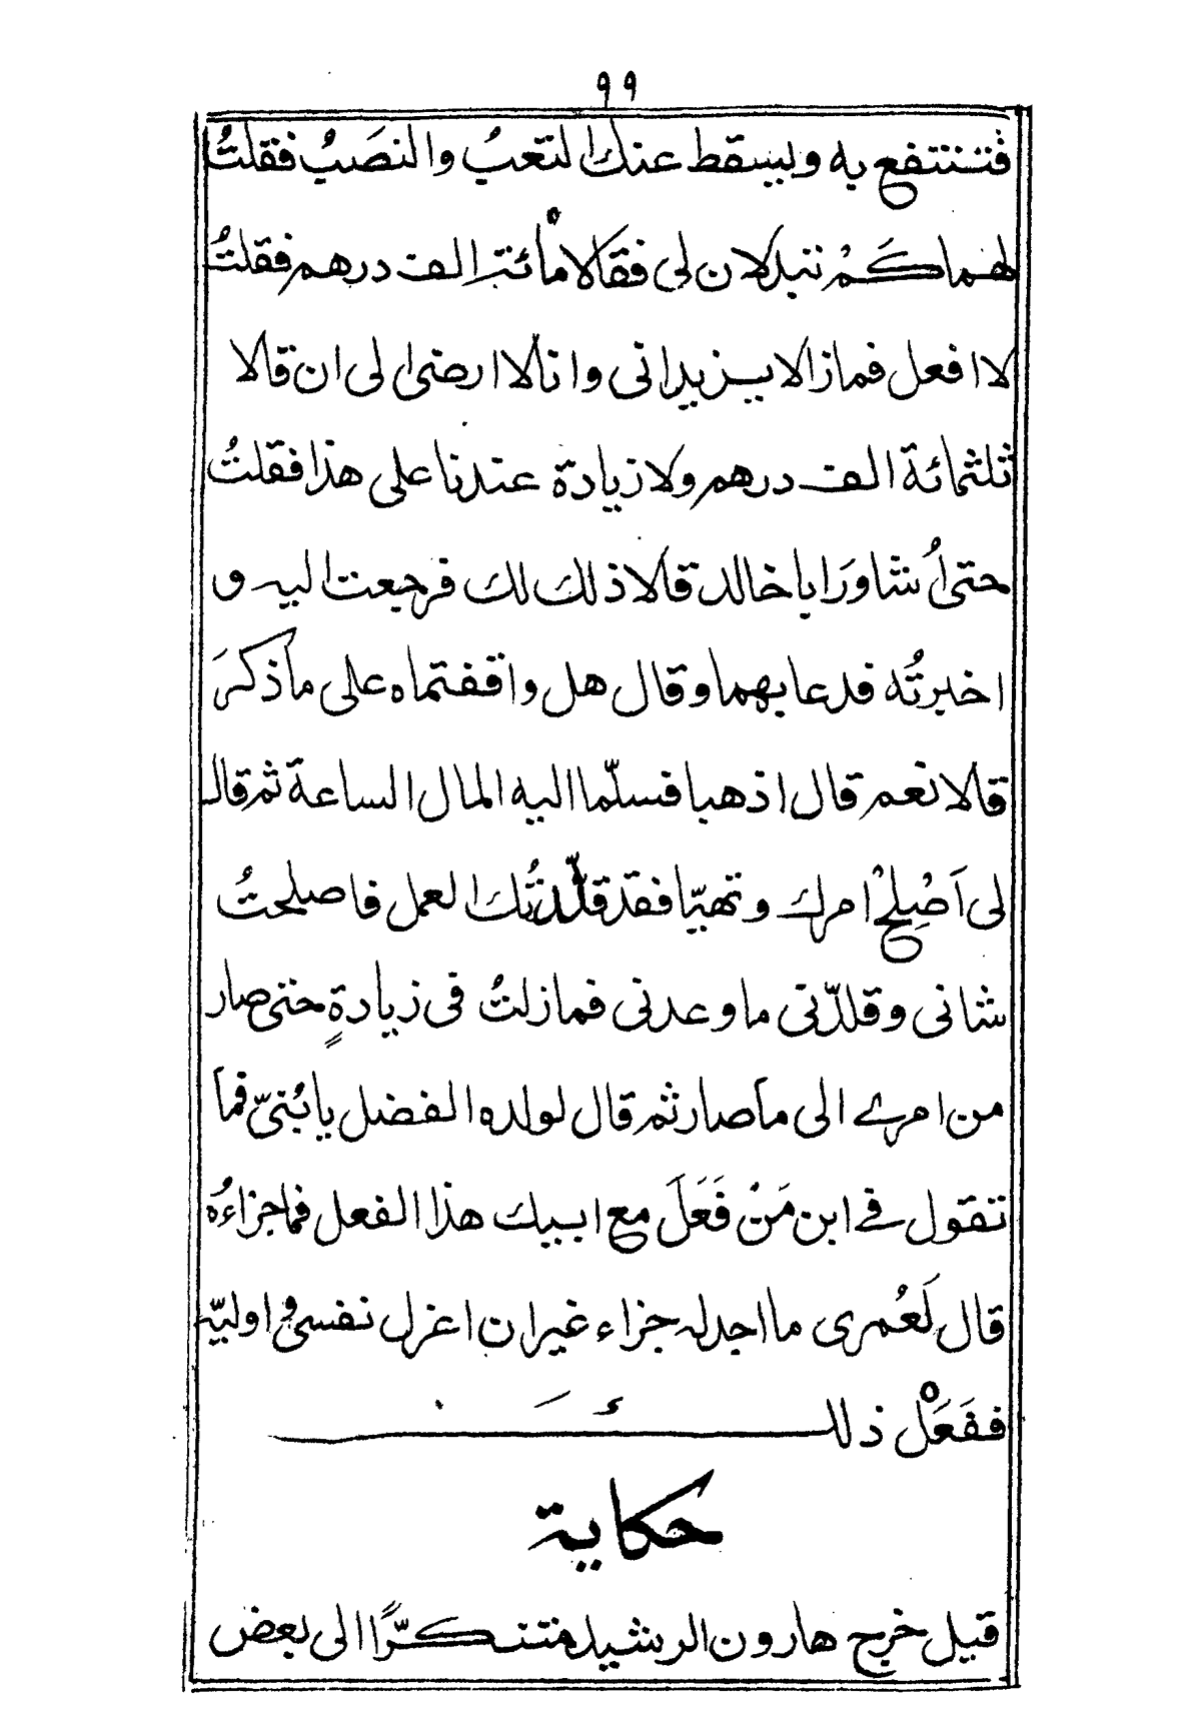 ٩٩
فتنتفع به ويسقط عنك التعبُ والنصَبُ فقلتُ
لهما كَمْ تبذلان لى فقالا مأئة الف درهم فقلتُ
لا افعل فمازالا يزيدانى وانا لا ارضى الى ان قالا
ثلثمائة الف درهم ولا زيادة عندنا على هذا فقلتُ
حتى اُشاوَر ابا خالد قالا ذلك لك فرجعت اليه و
اخبرتُه فدعا بهما وقال هل واقفتماه على ما ذكرَ
قالا نعم قال اذهبا فسلّما اليه المال الساعة ثم قال
لى اَصْلِحْ امرك وتهيّا فقد قلّدتُك العمل فاصلحتُ
شانى وقلّدنى ما وعدنى فمازلتُ فى زيادةٍ حتى صار
من امرى الى ما صار ثم قال لولده الفضل يا بُنىّ فما
تقول فى ابن مَنْ فَعَلَ مع ابيك هذا الفعل فما جزاءُه
قال لَعُمرى ما اجد له جزاء غير ان اعزل نفسى و اوليّه
ففَعَلْ ذلك
حكاية
قيل خرج هارون الرشيد متنكّرًا الى بعض